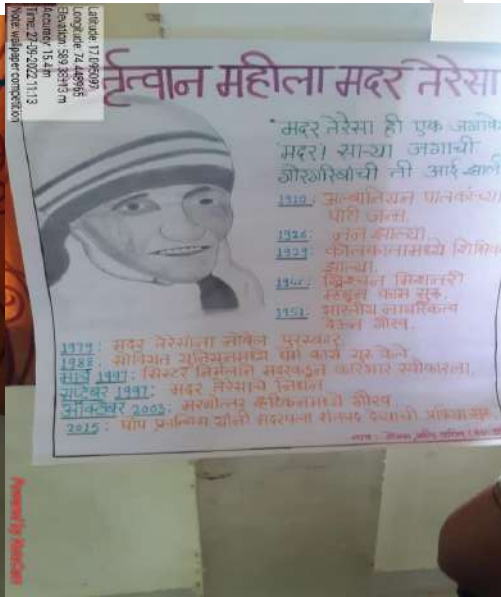 Latitude: 17.095097
Longitude: 74.448965
Elevation: 589.38±13 m
Accuracy: 15.4 m
Time: 27-09-2022 11:13
Note: wallpaper competition
र्तृत्वान महीला मदर तेरेसा
मदर तेरेसा ही एक जगाची
मदर। साऱ्या जगाची
गोरगरिबांची ती आई झाली
1910: अल्बानियन पालकांच्या
पोटी जन्म.
1928: नन झाल्या.
1929: कोलकातामध्ये शिक्षिका
झाल्या.
ख्रिश्चन मिशनरी
म्हणून काम सुरू.
1951: भारतीय नागरिकत्व
देऊन गौरव.
1979: मदर तेरेसांना नोबेल पुरस्कार
1988: सोवियत युनियनमध्ये धर्म कार्य सुरू केले
मार्च 1997: सिस्टर निर्मलांनी मदरकडून कारभार स्वीकारला.
सप्टेंबर 1997: मदर तेरेसांचे निधन
ऑक्टोबर 2003: मरणोत्तर व्हॅटिकनमध्ये गौरव
2015: पोप फ्रान्सिस यांनी मदरला संतपद देण्याची प्रक्रिया सुरू
नाव:
Powered by NoteCam